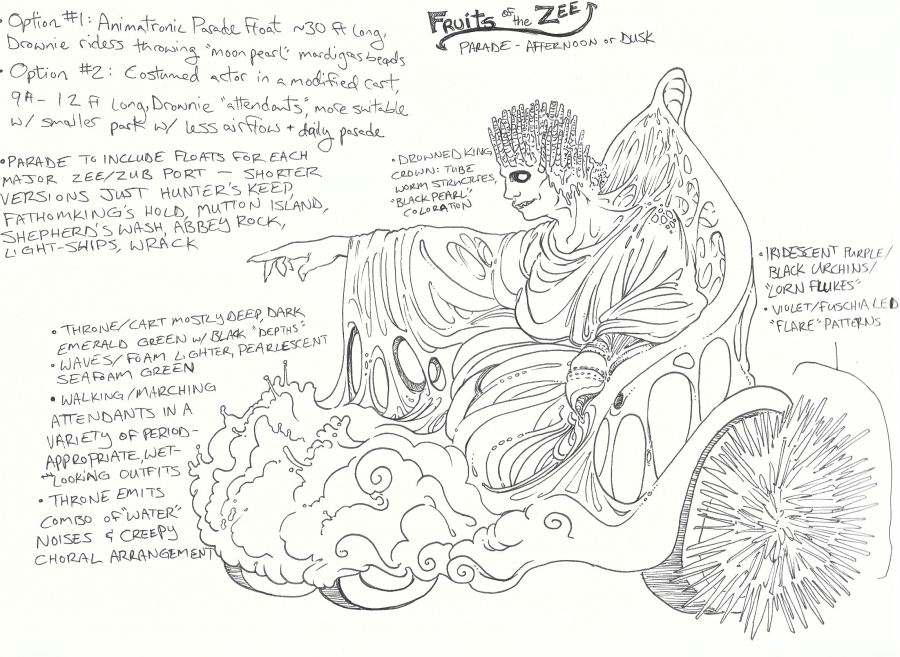 FRUITS OF THE ZEE
PARADE - AFTERNOON OR DUSK
• Option #1: Animatronic Parade Float ~30 ft long,
Drownie riders throwing "moon pearl" mardigras beads
• Option #2: Costumed actor in a modified cart,
9ft - 12 ft long, Drownie "attendants", more suitable
w/ smaller park w/ less airflow + daily parade
• PARADE TO INCLUDE FLOATS FOR EACH
MAJOR ZEE/ZUB PORT — SHORTER
VERSIONS JUST HUNTER'S KEEP,
FATHOMKING'S HOLD, MUTTON ISLAND,
SHEPHERD'S WASH, ABBEY ROCK,
LIGHT-SHIPS, WRACK
• DROWNED KING
CROWN: TUBE
WORM STRUCTURES,
"BLACK PEARL"
COLORATION
• IRIDESCENT PURPLE/
BLACK URCHINS/
"LORN FLUKES"
• VIOLET/FUSCHIA LED
"FLARE" PATTERNS
• THRONE/CART MOSTLY DEEP, DARK
EMERALD GREEN W/ BLACK "DEPTHS"
• WAVES/FOAM LIGHTER, PEARLESCENT
SEAFOAM GREEN
• WALKING/MARCHING
ATTENDANTS IN A
VARIETY OF PERIOD-
APPROPRIATE, WET-
LOOKING OUTFITS
• THRONE EMITS
COMBO OF "WATER"
NOISES & CREEPY
CHORAL ARRANGEMENT